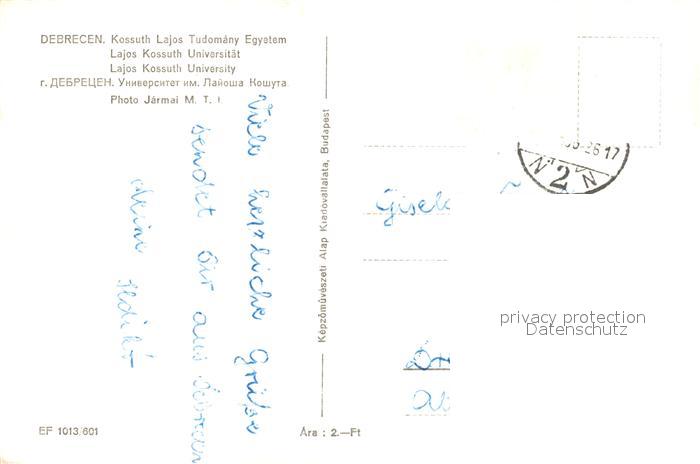 DEBRECEN. Kossuth Lajos Tudomány Egyetem
Lajos Kossuth Universität
Lajos Kossuth University
г. ДЕБРЕЦЕН. Университет им. Лайоша Кошута
Photo Jármai M. T. I.
Viele herzliche Grüsse
sendet Dir aus Debrecen
Képzőművészeti Alap Kiadóvállalata, Budapest
26 17
2
privacy protection
Datenschutz
EF 1013/601
Ára : 2.—Ft